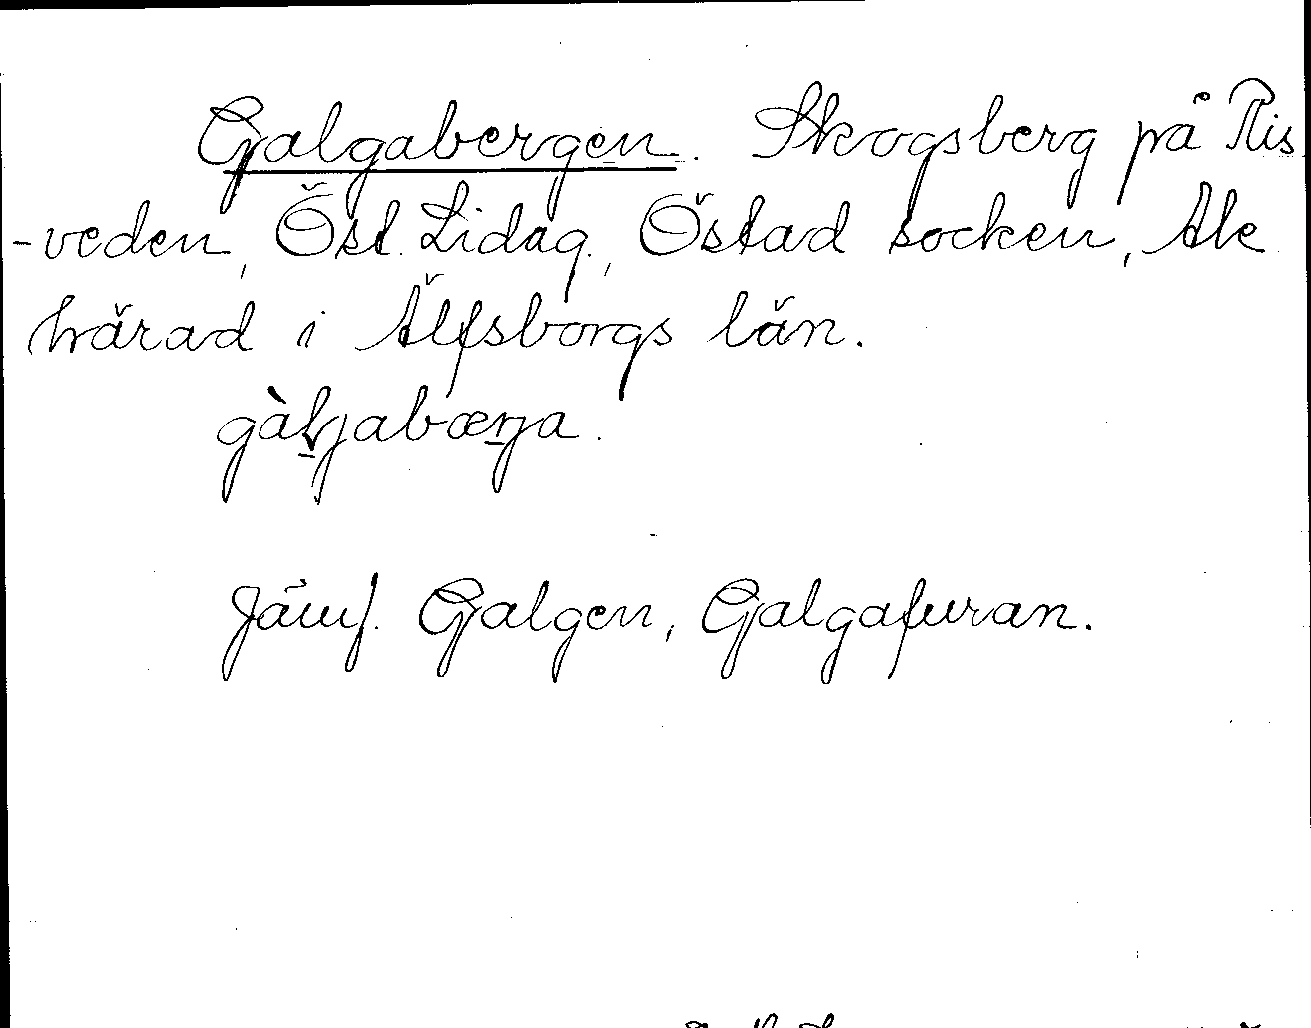 Galgabergen. Skogsberg på Ris
-veden, Öst. Lidag., Östad socken, Ale
härad i Älfsborgs län.
gàljabærja.
Jämf. Galgen, Galgafuran.